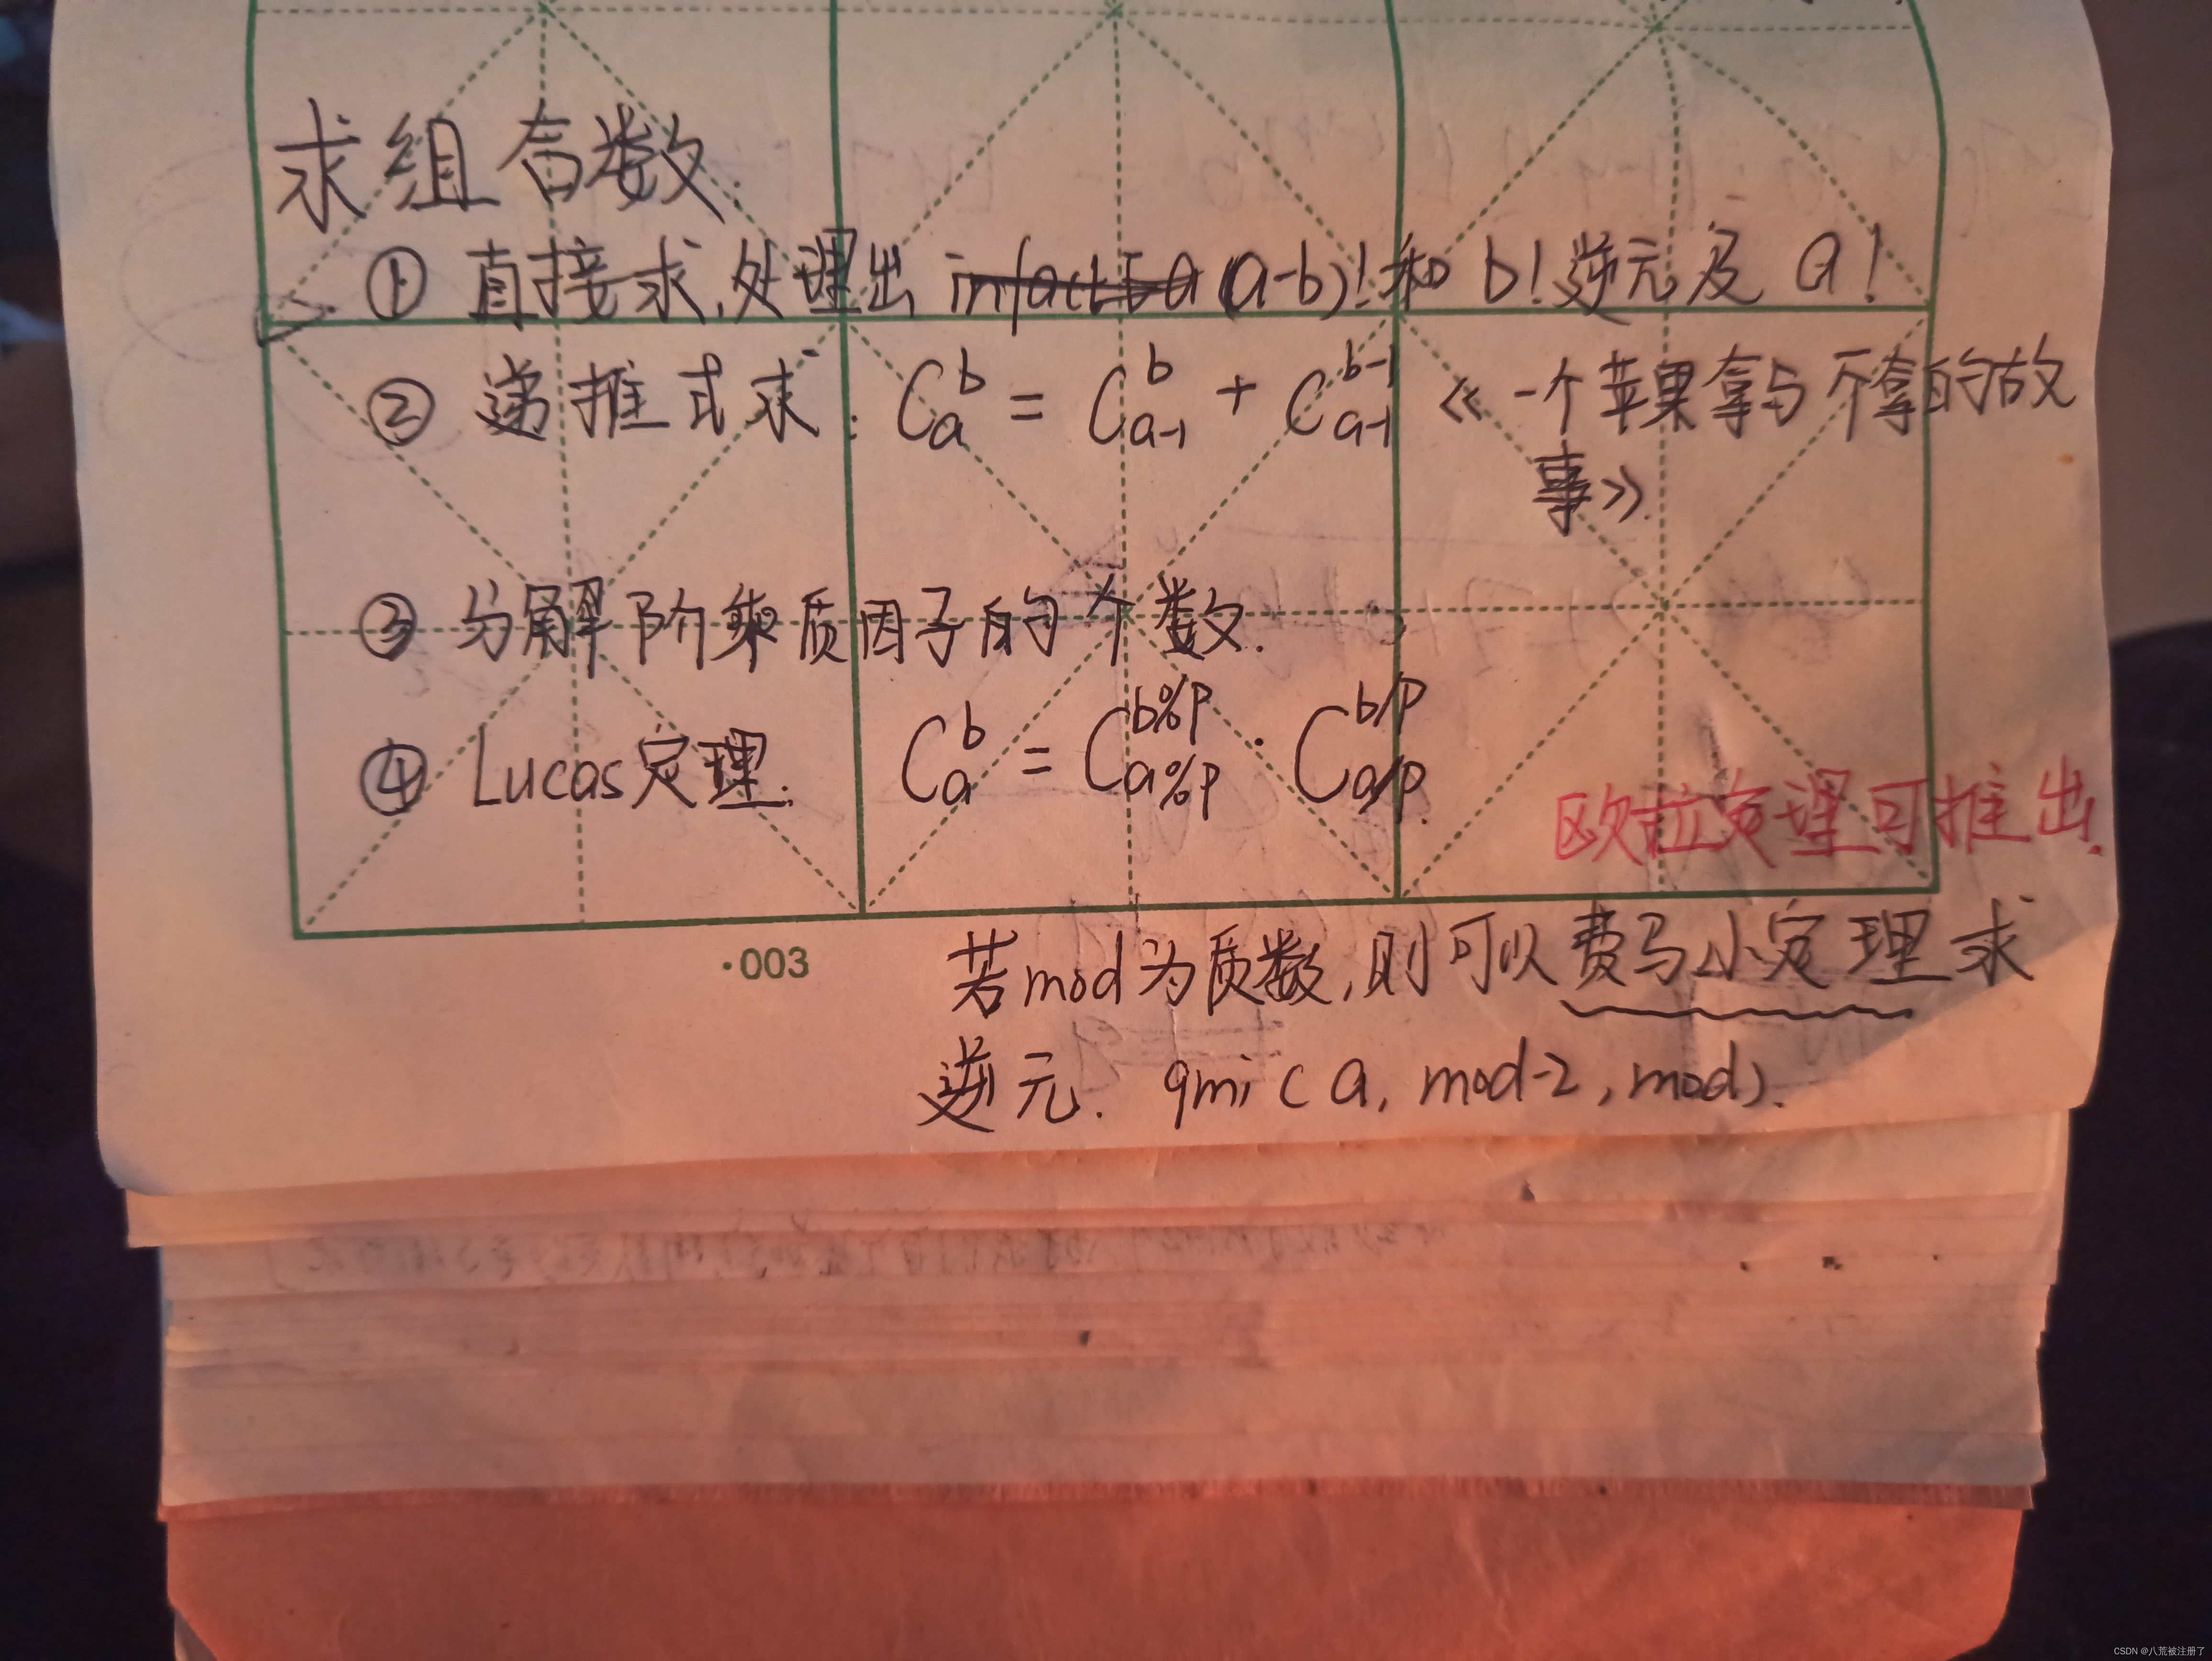 求组合数.
① 直接求,处理出 (a-b)!和 b!逆元及 a!
② 递推式求: C_a^b = C_{a-1}^b + C_{a-1}^{b-1} 《一个苹果拿与不拿的故
事》.
③ 分解阶乘质因子的个数.
④ Lucas定理. C_a^b = C_{a%p}^{b%p} · C_{a/p}^{b/p}.
欧拉定理可推出.
·003
若mod为质数,则可以费马小定理求
逆元. qmi(a, mod-2, mod).
CSDN @八荒被注册了